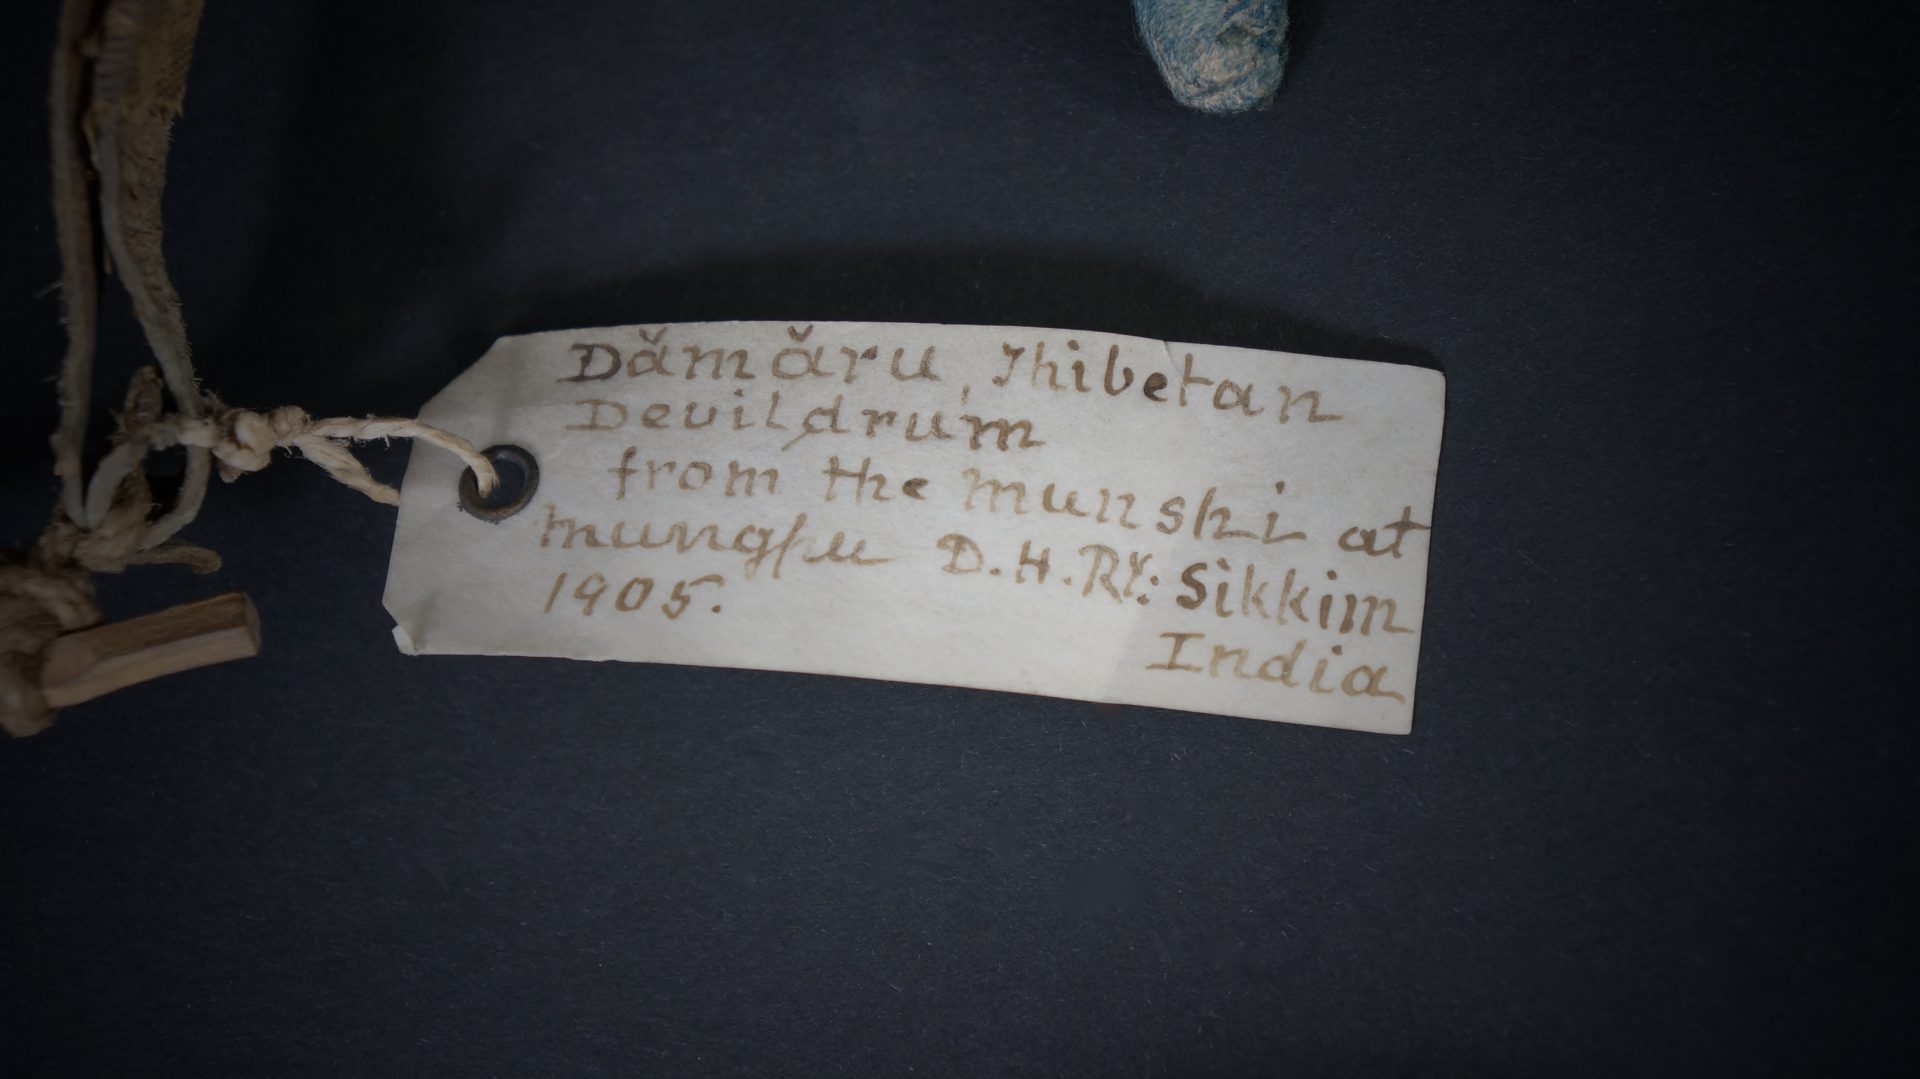 Dămăru, Thibetan
Devildrum
from the munshi at
mungpu D.H.RY: Sikkim
1905. India